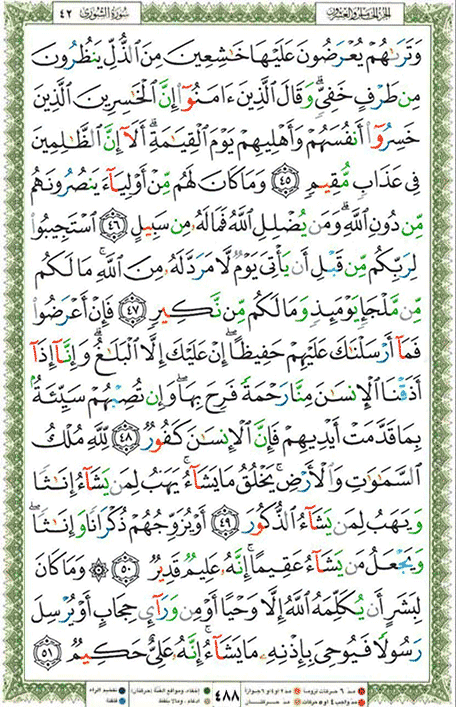 سُورَةُ الشُّورَىٰ ٤٢
الجزء الخامس والعشرون
وَتَرَىٰهُمْ يُعْرَضُونَ عَلَيْهَا خَٰشِعِينَ مِنَ ٱلذُّلِّ يَنظُرُونَ
مِن طَرْفٍ خَفِىٍّ ۗ وَقَالَ ٱلَّذِينَ ءَامَنُوٓا۟ إِنَّ ٱلْخَٰسِرِينَ ٱلَّذِينَ
خَسِرُوٓا۟ أَنفُسَهُمْ وَأَهْلِيهِمْ يَوْمَ ٱلْقِيَٰمَةِ ۗ أَلَآ إِنَّ ٱلظَّٰلِمِينَ
فِى عَذَابٍ مُّقِيمٍ ٤٥ وَمَا كَانَ لَهُم مِّنْ أَوْلِيَآءَ يَنصُرُونَهُم
مِّن دُونِ ٱللَّهِ ۗ وَمَن يُضْلِلِ ٱللَّهُ فَمَا لَهُۥ مِن سَبِيلٍ ٤٦ ٱسْتَجِيبُوا۟
لِرَبِّكُم مِّن قَبْلِ أَن يَأْتِىَ يَوْمٌ لَّا مَرَدَّ لَهُۥ مِنَ ٱللَّهِ ۚ مَا لَكُم
مِّن مَّلْجَإٍ يَوْمَئِذٍ وَمَا لَكُم مِّن نَّكِيرٍ ٤٧ فَإِنْ أَعْرَضُوا۟
فَمَآ أَرْسَلْنَٰكَ عَلَيْهِمْ حَفِيظًا ۖ إِنْ عَلَيْكَ إِلَّا ٱلْبَلَٰغُ ۗ وَإِنَّآ إِذَآ
أَذَقْنَا ٱلْإِنسَٰنَ مِنَّا رَحْمَةً فَرِحَ بِهَا ۖ وَإِن تُصِبْهُمْ سَيِّئَةٌۢ
بِمَا قَدَّمَتْ أَيْدِيهِمْ فَإِنَّ ٱلْإِنسَٰنَ كَفُورٌ ٤٨ لِّلَّهِ مُلْكُ
ٱلسَّمَٰوَٰتِ وَٱلْأَرْضِ ۚ يَخْلُقُ مَا يَشَآءُ ۚ يَهَبُ لِمَن يَشَآءُ إِنَٰثًا
وَيَهَبُ لِمَن يَشَآءُ ٱلذُّكُورَ ٤٩ أَوْ يُزَوِّجُهُمْ ذُكْرَانًا وَإِنَٰثًا ۖ
وَيَجْعَلُ مَن يَشَآءُ عَقِيمًا ۚ إِنَّهُۥ عَلِيمٌ قَدِيرٌ ٥٠ ۞ وَمَا كَانَ
لِبَشَرٍ أَن يُكَلِّمَهُ ٱللَّهُ إِلَّا وَحْيًا أَوْ مِن وَرَآئِ حِجَابٍ أَوْ يُرْسِلَ
رَسُولًا فَيُوحِىَ بِإِذْنِهِۦ مَا يَشَآءُ ۚ إِنَّهُۥ عَلِىٌّ حَكِيمٌ ٥١
مدّ ٦ حركات لزوماً مدّ ٢ او ٤ او ٦ جوازاً
مدّ واجب ٤ او ٥ حركات مدّ حركتان
٤٨٨
إخفاء، ومواقع الغنّة (حركتان) تفخيم الراء
ادغام، وما لا يلفظ قلقلة